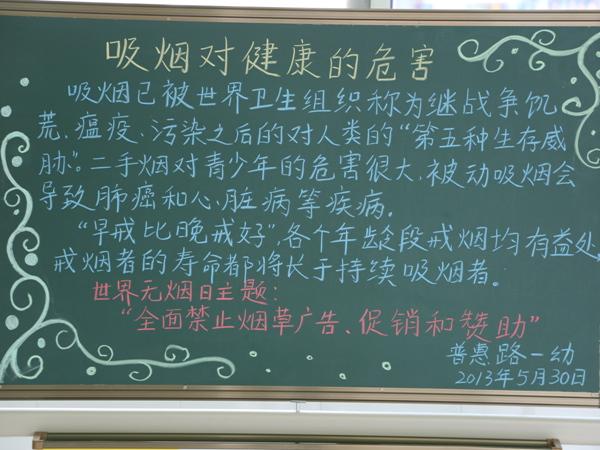 吸烟对健康的危害
吸烟已被世界卫生组织称为继战争饥
荒、瘟疫、污染之后的对人类的“第五种生存威
胁”。二手烟对青少年的危害很大，被动吸烟会
导致肺癌和心脏病等疾病。
“早戒比晚戒好”，各个年龄段戒烟均有益处，
戒烟者的寿命都将长于持续吸烟者。
世界无烟日主题：
“全面禁止烟草广告、促销和赞助”
普惠路一幼
2013年5月30日